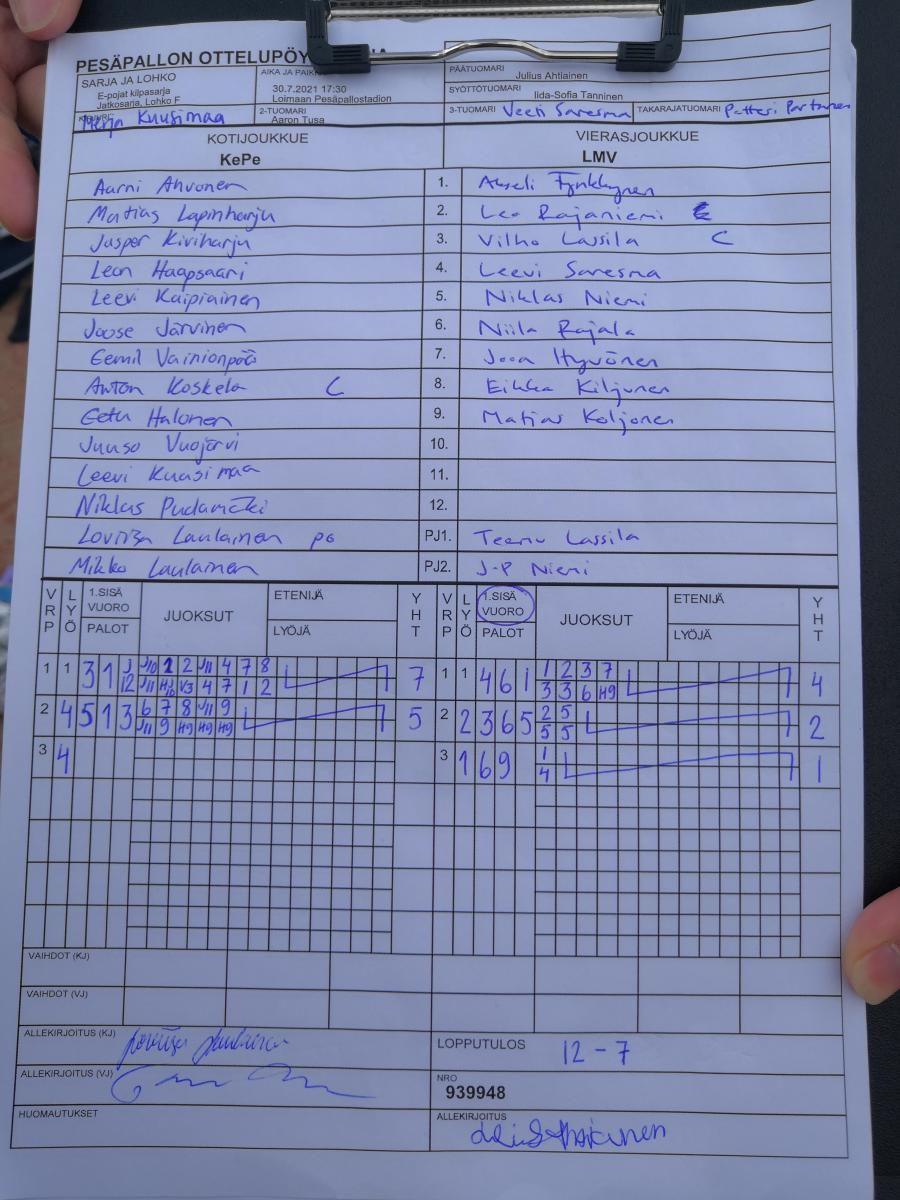 PESÄPALLON OTTELUPÖY
SARJA JA LOHKO
E-pojat kilpasarja
Jatkosarja, Lohko F
AIKA JA PAIKKA
30.7.2021 17:30
Loimaan Pesäpallostadion
PÄÄTUOMARI
Julius Ahtiainen
SYÖTTÖTUOMARI
Iida-Sofia Tanninen
Merja Kuusimaa
2-TUOMARI
Aaron Tusa
3-TUOMARI Veeti Saresma
TAKARAJATUOMARI Petteri Partanen
KOTIJOUKKUE
KePe
VIERASJOUKKUE
LMV
Aarni Ahvonen 1. Akseli Tynkkynen
Matias Lapinharju 2. Leo Rajaniemi
Jasper Kiviharju 3. Vilho Lassila C
Leon Haapsaari 4. Leevi Saresma
Leevi Kaipiainen 5. Niklas Niemi
Joose Järvinen 6. Niila Rajala
Eemil Vainionpää 7. Joon Hyvönen
Anton Koskela C 8. Eikka Kiljunen
Eetu Halonen 9. Matias Koljonen
Juuso Vuojärvi 10.
Leevi Kuusimaa 11.
Niklas Pudamäki 12.
Loviisa Laulainen PJ1. Teemu Lassila
Mikko Laulainen PJ2. J-P Niemi
VRP LYÖ 1.SISÄ VUORO PALOT JUOKSUT ETENIJÄ LYÖJÄ YHT VRP LYÖ 1.SISÄ VUORO PALOT JUOKSUT ETENIJÄ LYÖJÄ YHT
1 1 3 1 J J10 2 2 J11 4 7 8 7 1 1 4 6 1 1 2 3 7 4
12 J11 V3 4 7 1 2 3 3 6 H9
2 4 5 1 3 6 7 8 J11 9 5 2 2 3 6 5 2 5 2
J11 9 H9 H9 H9 5 5
3 4 3 1 6 9 1 1
4
VAIHDOT (KJ)
VAIHDOT (VJ)
ALLEKIRJOITUS (KJ) Loviisa Laulainen
LOPPUTULOS 12 - 7
ALLEKIRJOITUS (VJ)
NRO
939948
HUOMAUTUKSET
ALLEKIRJOITUS